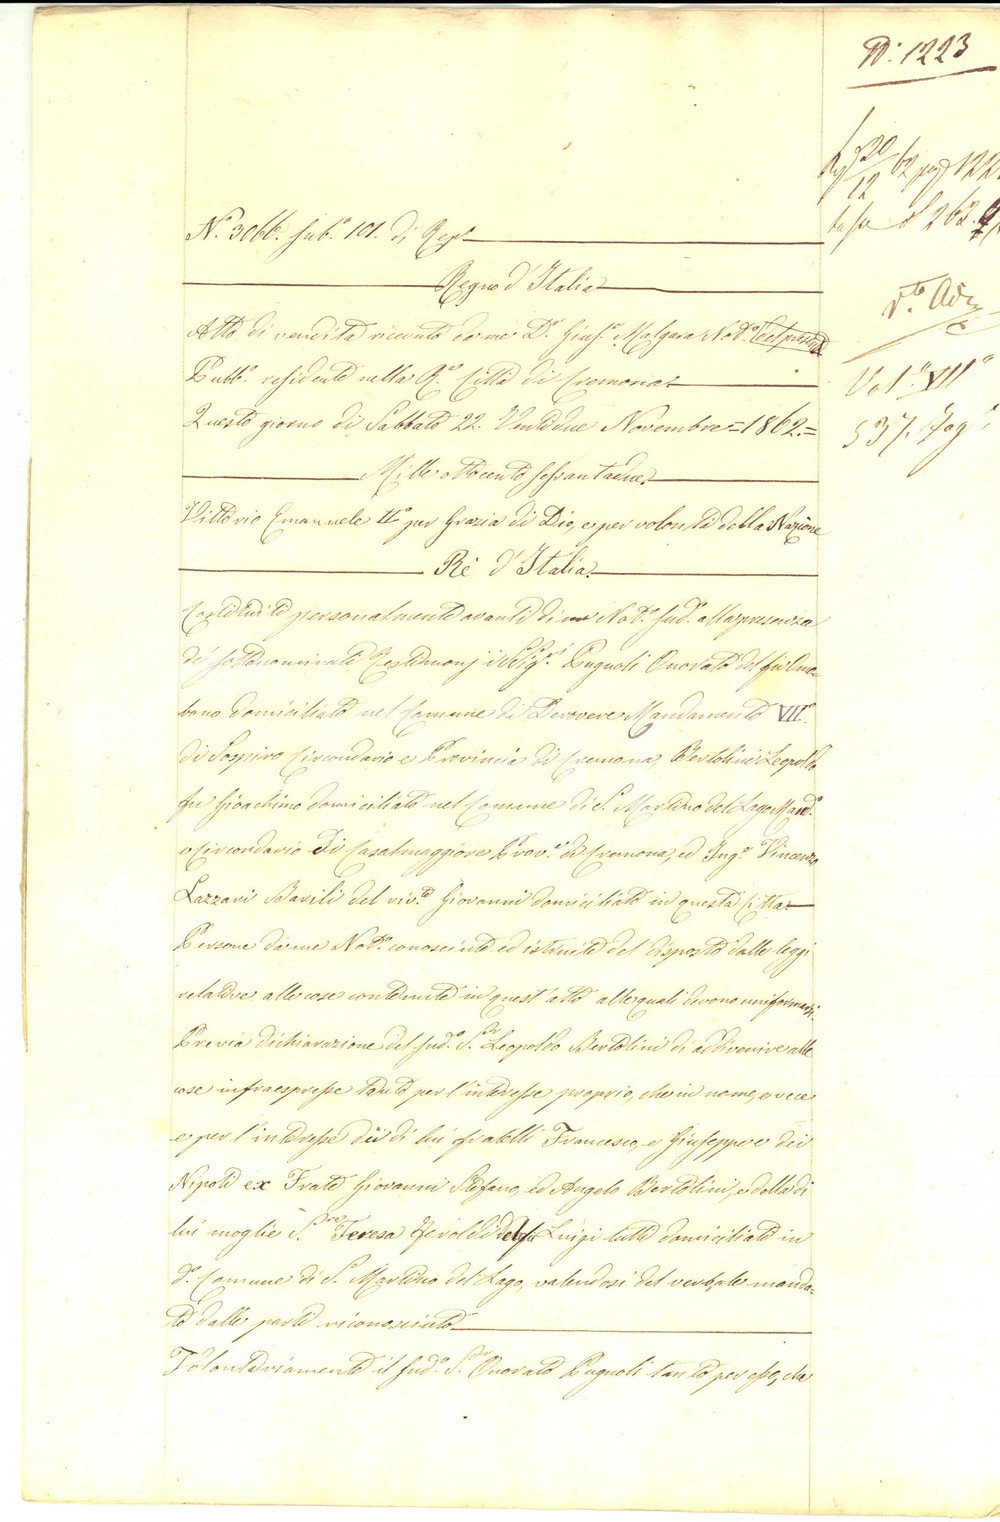 N. 1223
20/12 62 pag 122
tassa £ 262.
N.° 3066. sub.° 101. di Rep.°
Regno d'Italia
Atto di vendita ricevuto da me D.r Gius.e Malgara Not.°
Pubb.° residente nella R.a Città di Cremona
Questo giorno di Sabbato 22. Ventidue Novembre = 1862. =
Mille ottocento sessantadue.
Vittorio Emanuele II° per Grazia di Dio, e per volontà della Nazione
Rè d'Italia.
Vol.e VII°
537. fog.i
Costituiti personalmente avanti di me Not.° sud.° alla presenza
de' sottonominati Testimonj i Sig.ri Pugnoli Onorato del fu
bono domiciliato nel Comune di Derovere Mandamento VII.°
di Sospiro Circondario e Provincia di Cremona, Bertolini Leopoldo
fu Gioachimo domiciliato nel Comune di S. Martino del Lago Mand.°
e Circondario di Casalmaggiore Prov.a di Cremona, ed Ing.e Vincenzo
Lazzari Barili del viv.te Giovanni domiciliato in questa Città.
Persone da me Not.° conosciute ed istruite del disposto dalle leggi
relative alle cose contenute in quest'atto alle quali devono uniformarsi.
Previa dichiarazione del sud.° S.r Leopoldo Bertolini di addivenire alle
cose infraespresse tanto per l'interesse proprio, che in nome, e vece
e per l'interesse dei di lui fratelli Francesco, e Giuseppe e dei
Nipoti ex Frate Giovanni Stefano, ed Angelo Bertolini, e della di
lui moglie S.ra Teresa Feroldi del fu Luigi tutti domiciliati in
d.° Comune di S. Martino del Lago, valendosi del verbale manda-
to dalle parti riconosciuto
Volontariamente il sud.° S.r Onorato Pugnoli tanto per esso, che